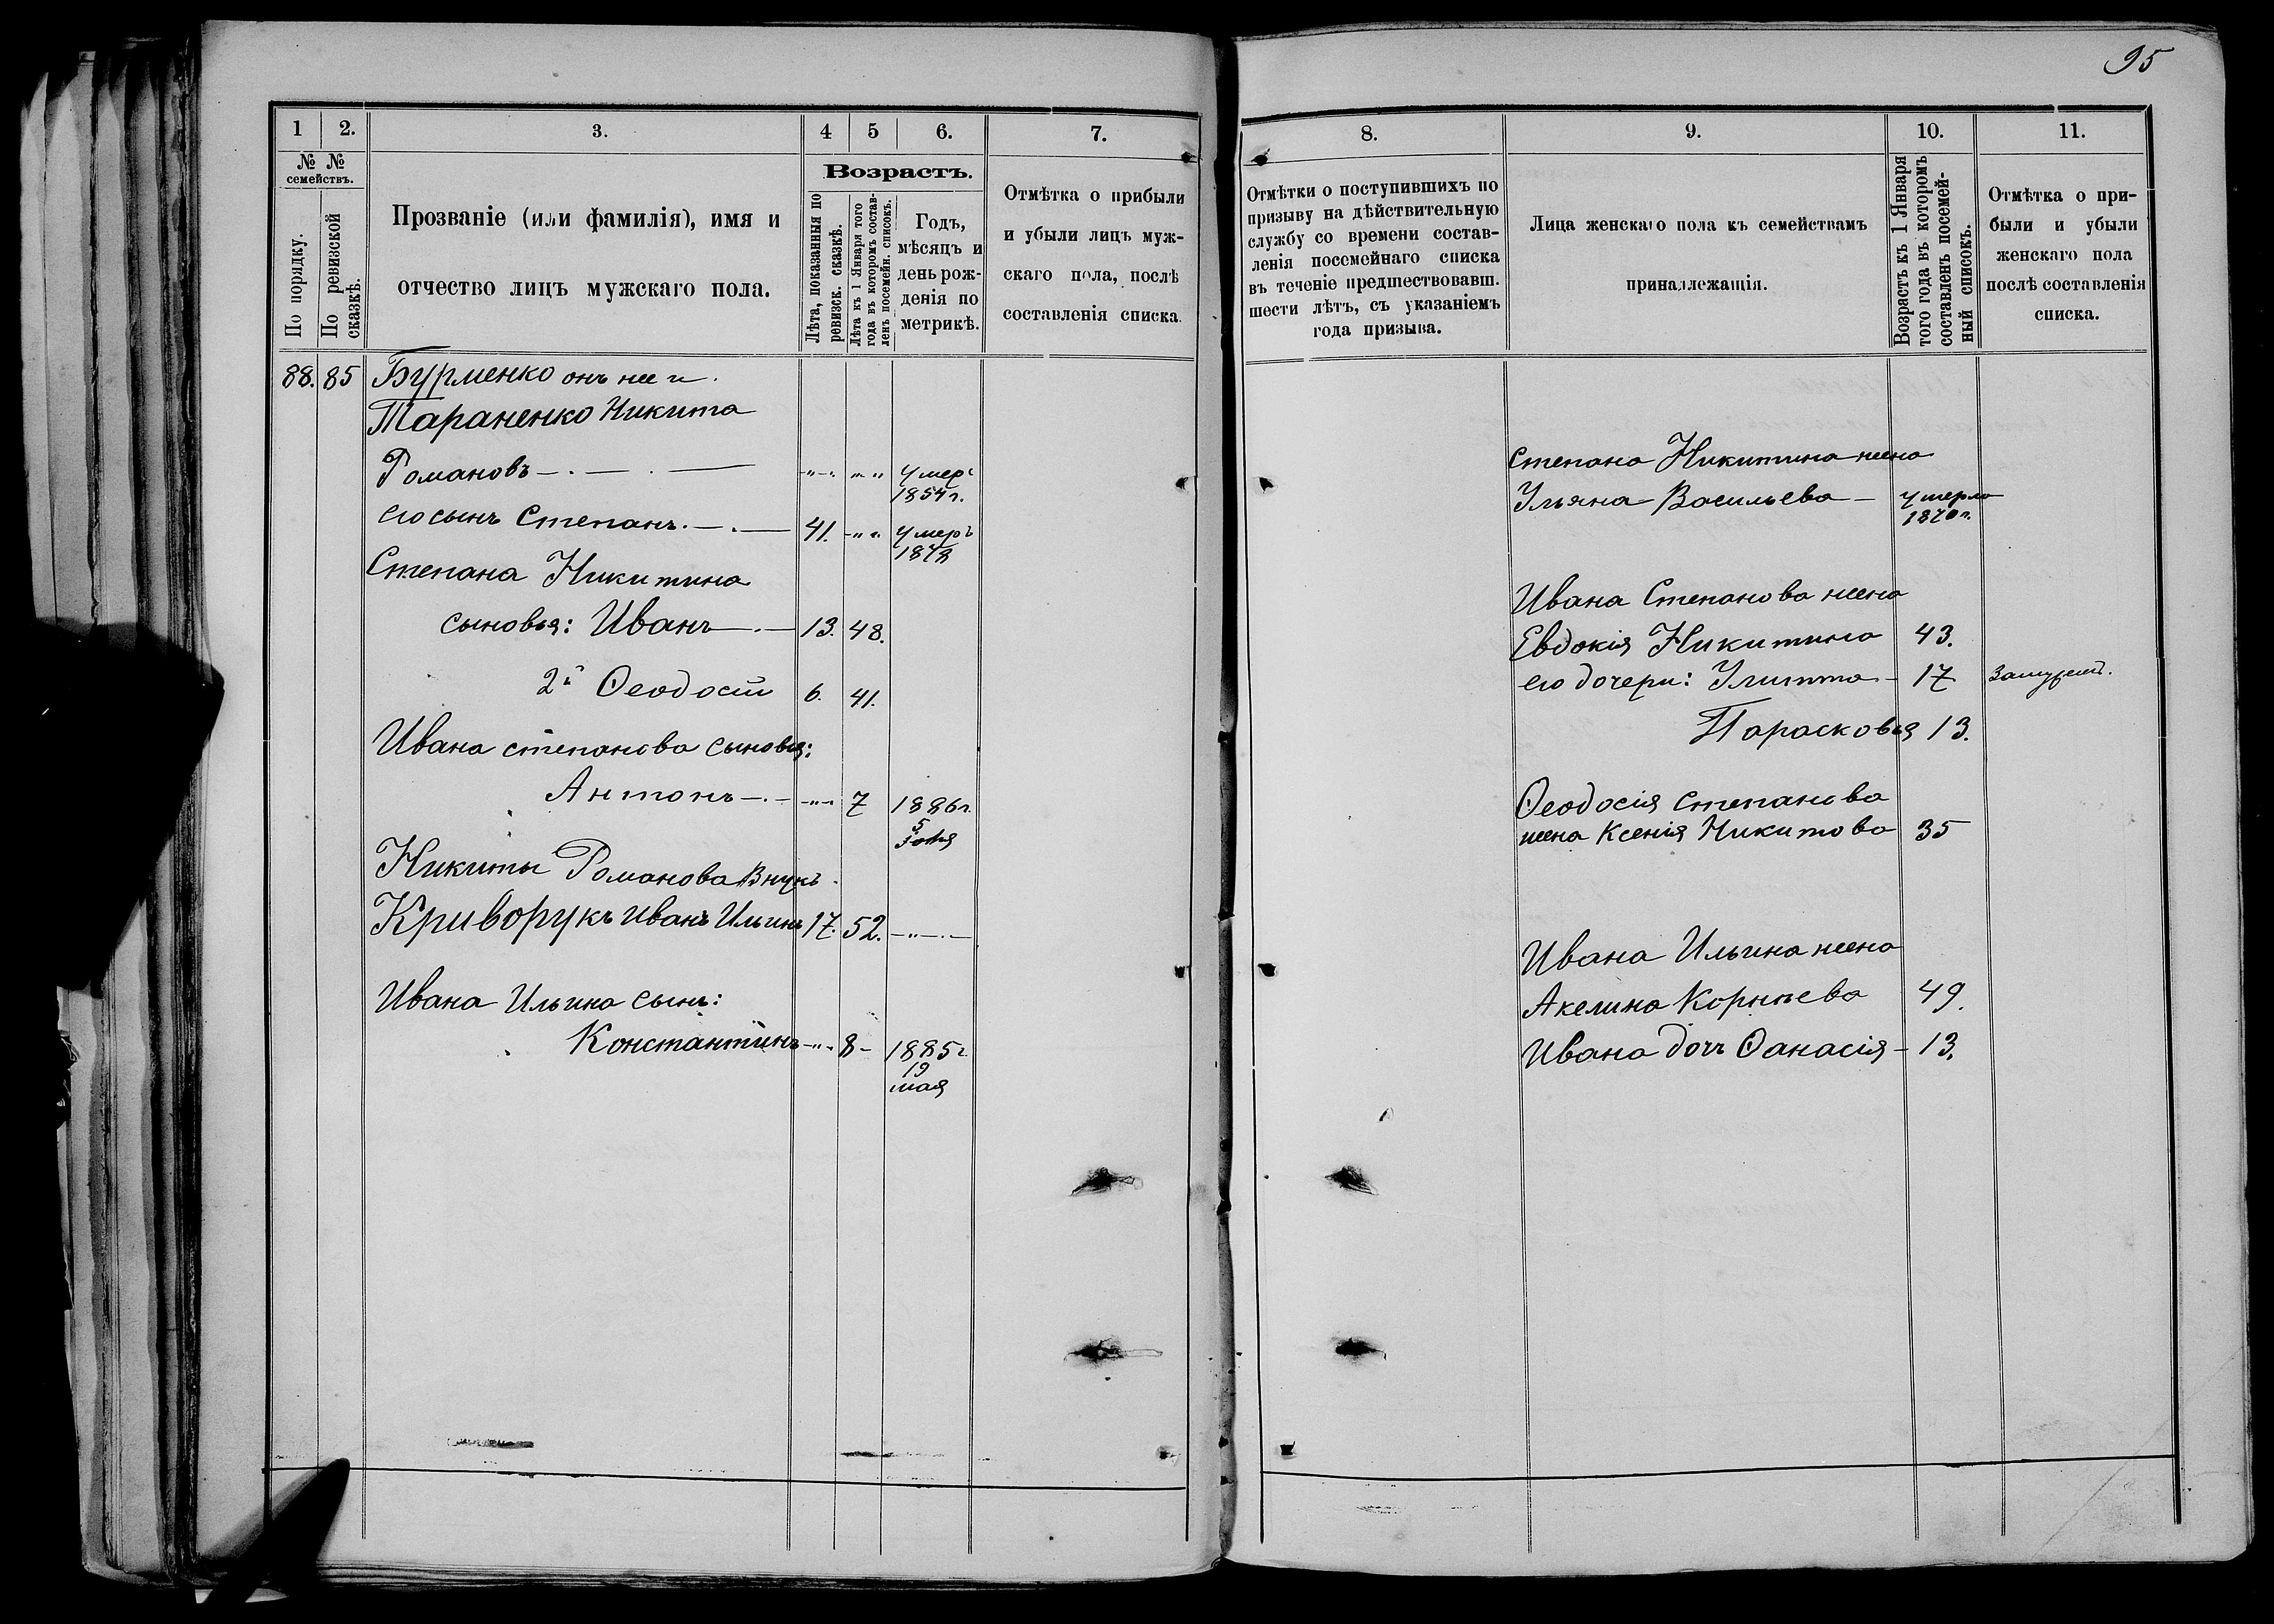 95
1 2. 3. 4 5 6. 7.
№ № семействъ.
По порядку.
По ревизской сказкѣ.
Прозваніе (или фамилія), имя и
отчество лицъ мужскаго пола.
Возрастъ.
Лѣта, показанныя по ревизск. сказкѣ.
Лѣта къ 1 Января того года въ которомъ составленъ посемейн. списокъ.
Годъ,
мѣсяцъ и
день рож-
денія по
метрикѣ.
Отмѣтка о прибыли
и убыли лицъ муж-
скаго пола, послѣ
составленія списка.
88. 85 Бурменко онъ же и
Тараненко Никита
Романовъ умеръ
1854 г.
его сынъ Степанъ 41. умеръ
1878
Степана Никитина
сыновья: Иванъ 13. 48.
2й Ѳеодосій 6. 41.
Ивана степанова сыновья:
Антонъ 7 1886 г.
5
Никиты Романова Внукъ
Криворукъ Иванъ Ильинъ 17. 52.
Ивана Ильина сынъ:
Константинъ 8 1885 г.
19
мая
8. 9. 10. 11.
Отмѣтки о поступившихъ по
призыву на дѣйствительную
службу со времени состав-
ленія посемейнаго списка
въ теченіе предшествовавш.
шести лѣтъ, съ указаніемъ
года призыва.
Лица женскаго пола къ семействамъ
принадлежащія.
Возрастъ къ 1 Января
того года въ которомъ
составленъ посемей-
ный списокъ.
Отмѣтка о при-
были и убыли
женскаго пола
послѣ составленія
списка.
Степана Никитина жена
Ульяна Васильева умерла
1870 г.
Ивана Степанова жена
Евдокія Никитина 43.
его дочери: Улитта 17 Замужемъ.
Парасковья 13.
Ѳеодосія Степанова
жена Ксенія Никитова 35
Ивана Ильина жена
Акелина Корнѣева 49.
Ивана дочь Ѳанасія 13.